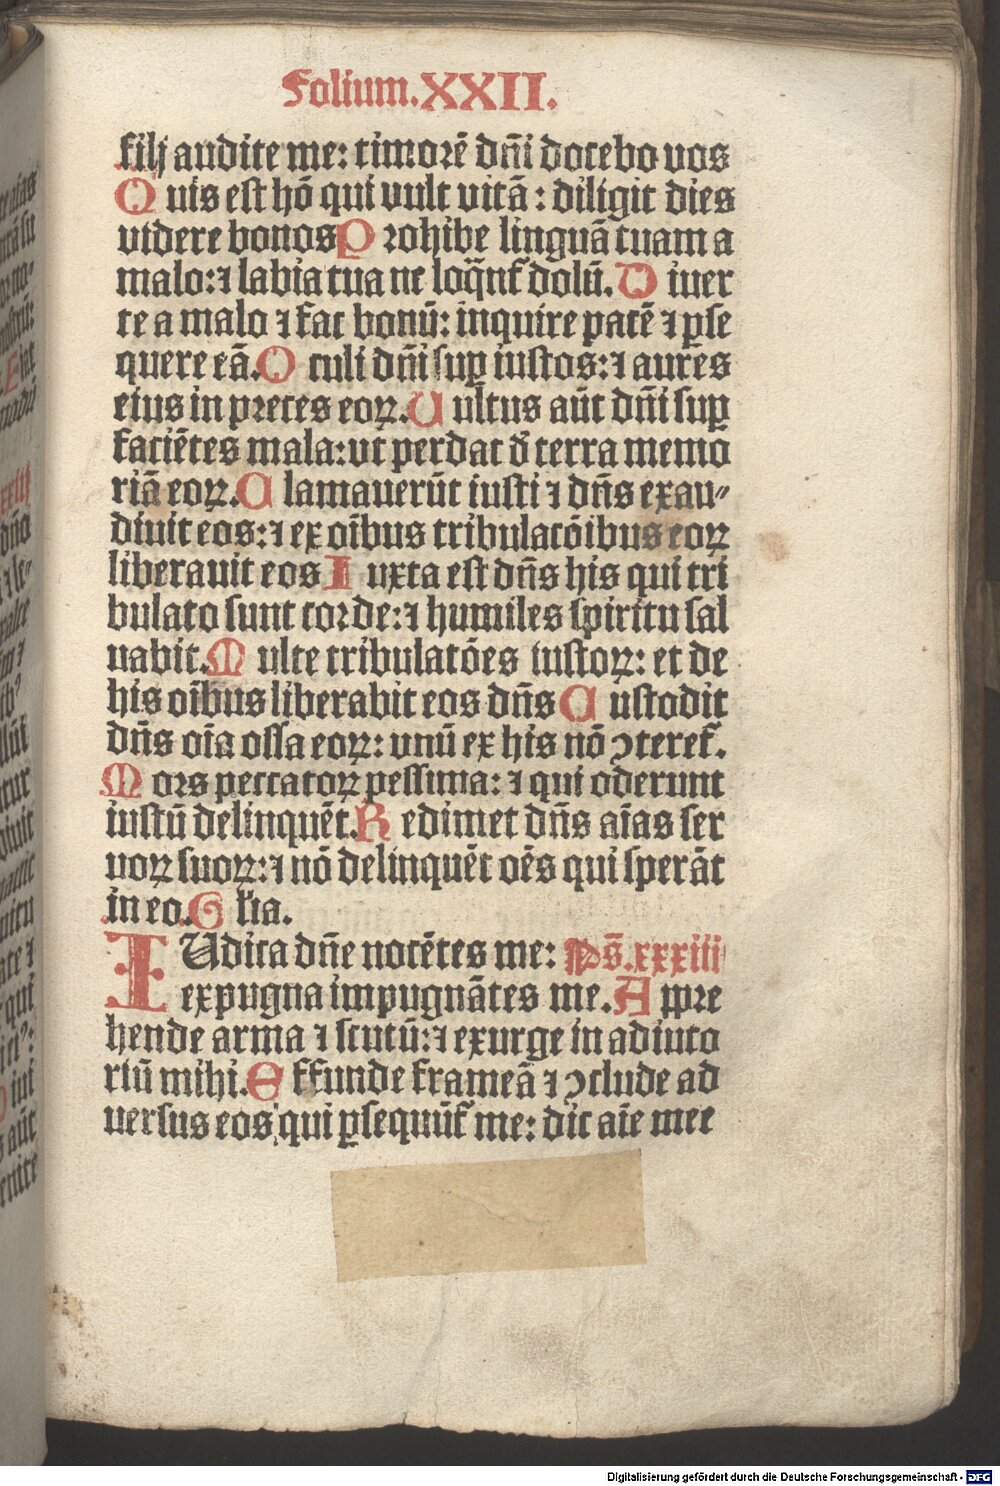 Folium.XXII.
filij audite me: timorē dn̄i docebo vos
Quis est hō qui vult vitā: diligit dies
videre bonos Prohibe linguā tuam a
malo: ⁊ labia tua ne loq̄nt᷑ dolū. Diuer
te a malo ⁊ fac bonū: inquire pacē ⁊ ꝑse
quere eā. Oculi dn̄i suꝑ iustos: ⁊ aures
eius in preces eoꝝ. Uultus aūt dn̄i suꝑ
faciētes mala: vt perdat đ terra memo
riā eoꝝ. Clamauerūt iusti ⁊ dn̄s exau⸗
diuit eos: ⁊ ex oībus tribulatōibus eoꝝ
liberauit eos Iuxta est dn̄s his qui tri
bulato sunt corde: ⁊ humiles spiritu sal
uabit. Multe tribulatōes iustoꝝ: et de
his oībus liberabit eos dn̄s Custodit
dn̄s oīa ossa eoꝝ: vnū ex his nō ↄteret᷑.
Mors peccatoꝝ pessima: ⁊ qui oderunt
iustū delinquēt. Redimet dn̄s aīas ser
uoꝝ suoꝝ: ⁊ nō delinquēt oēs qui sperāt
in eo. Gl'ia.
IUdica dn̄e nocētes me: Ps̄.xxxiiii
expugna impugnātes me. Appre
hende arma ⁊ scutū: ⁊ exurge in adiuto
riū mihi. Effunde frameā ⁊ ↄclude ad
versus eos qui ꝑsequūt᷑ me: dic aīe mee
Digitalisierung gefördert durch die Deutsche Forschungsgemeinschaft - DFG